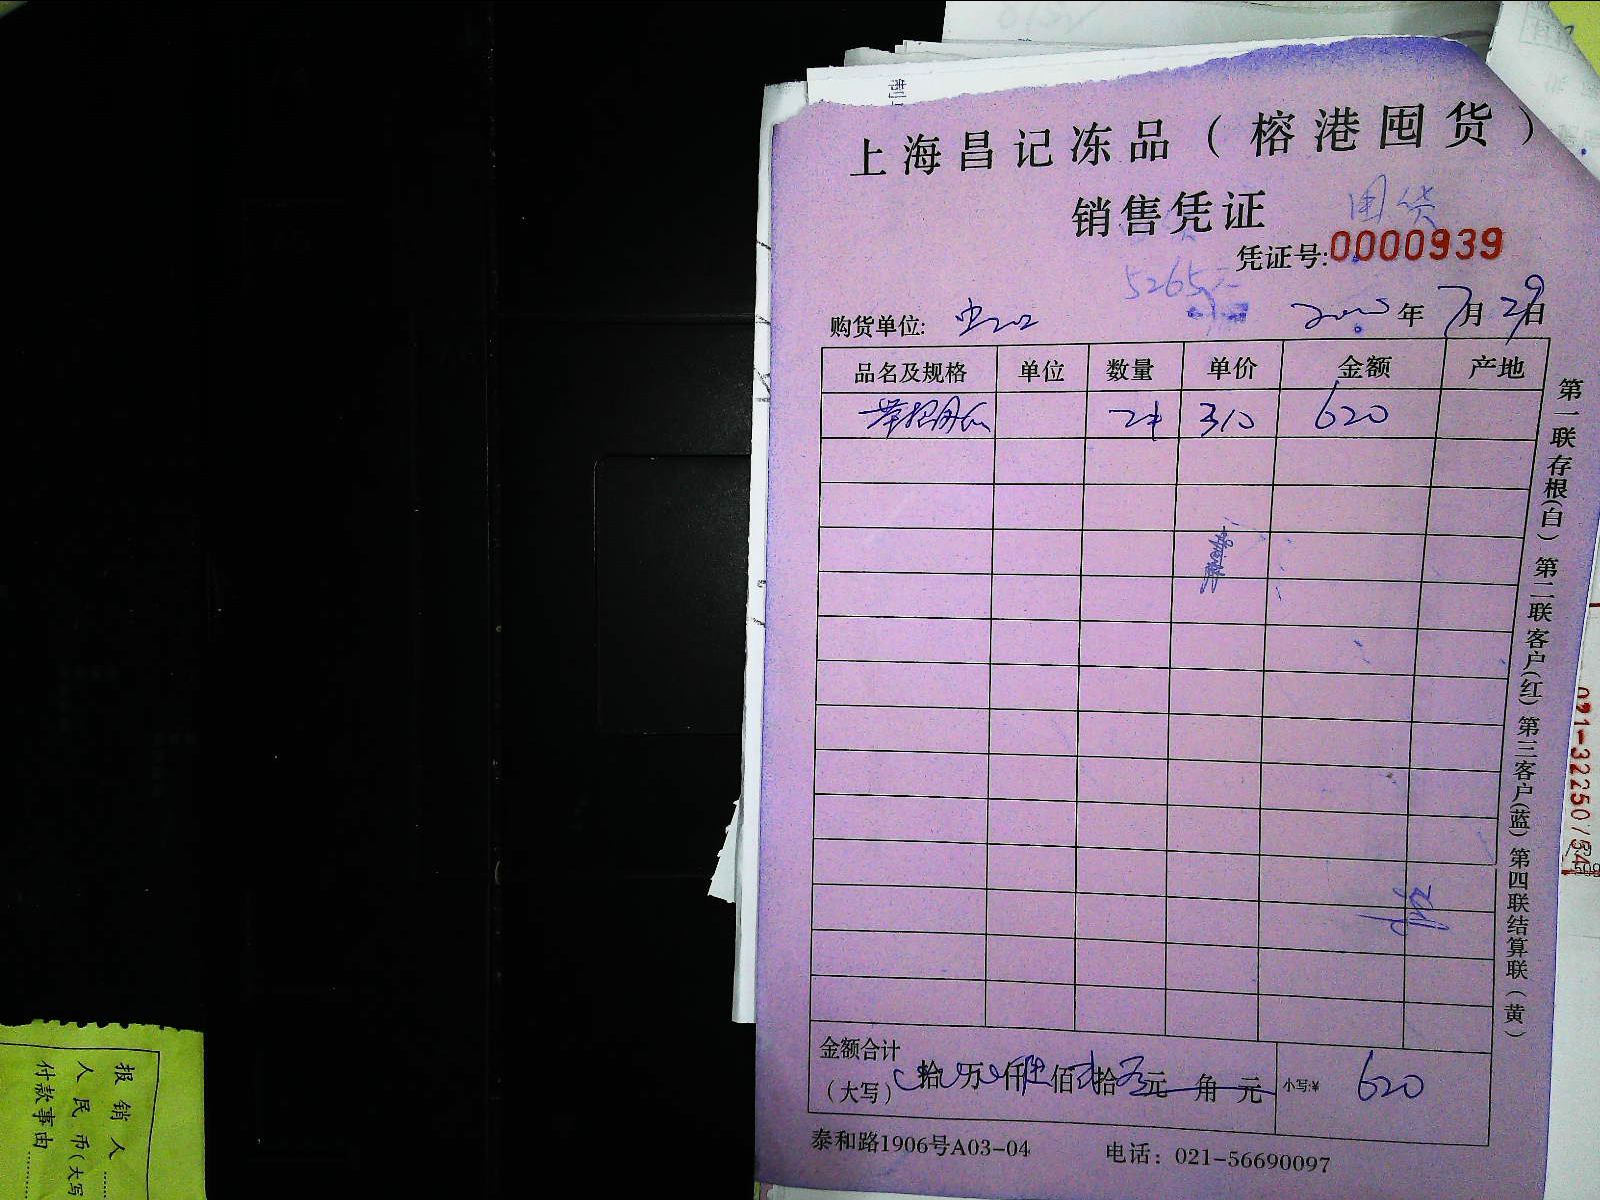 上海昌记冻品（榕港囤货）
销售凭证
囤货
凭证号:0000939
5265元
购货单位: 2020年7月29日
品名及规格 单位 数量 单价 金额 产地
2件 310 620
金额合计
（大写） 拾 万 仟陆佰贰拾零元 角 元 小写:¥ 620
泰和路1906号A03-04 电话：021-56690097
第一联存根(白) 第二联客户(红) 第三客户(蓝) 第四联结算联(黄)
021-32250154
报销人
人民币(大写
付款事由